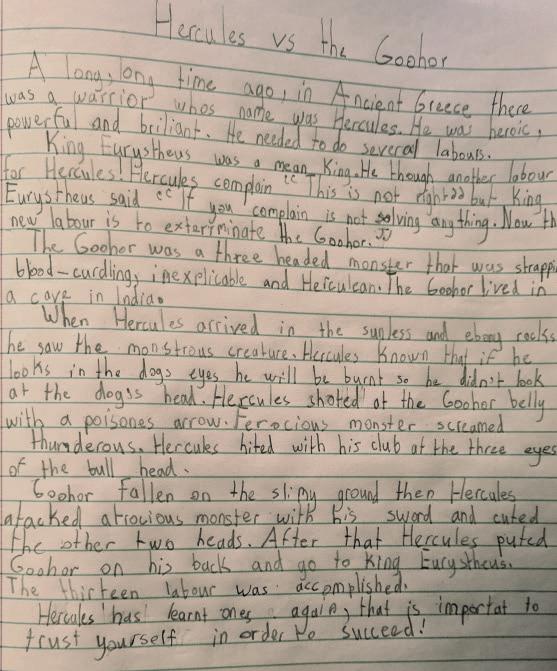 Hercules vs the Goohor
A long, long time ago, in Ancient Greece there
was a warrior whos name was Hercules. He was heroic,
powerful and briliant. He needed to do several labours.
King Eurystheus was a mean King. He though another labour
for Hercules! Hercules complain "This is not right" but King
Eurystheus said "If you complain is not solving anything. Now th
new labour is to exterminate the Goohor."
The Goohor was a three headed monster that was strappi
blood-curdling, inexplicable and Herculean. The Goohor lived in
a cave in India.
When Hercules arrived in the sunless and ebony rocks
he saw the monstrous creature. Hercules known that if he
looks in the dogs eyes he will be burnt so he didn't look
at the dog's head. Hercules shoted at the Goohor belly
with a poisones arrow. Ferocious monster screamed
thunderous. Hercules hited with his club at the three eyes
of the bull head.
Goohor fallen on the slipy ground then Hercules
atacked atrocious monster with his sword and cuted
the other two heads. After that Hercules puted
Goohor on his back and go to King Eurystheus.
The thirteen labour was accomplished.
Hercules has learnt ones again, that is importat to
trust yourself in order to succeed!